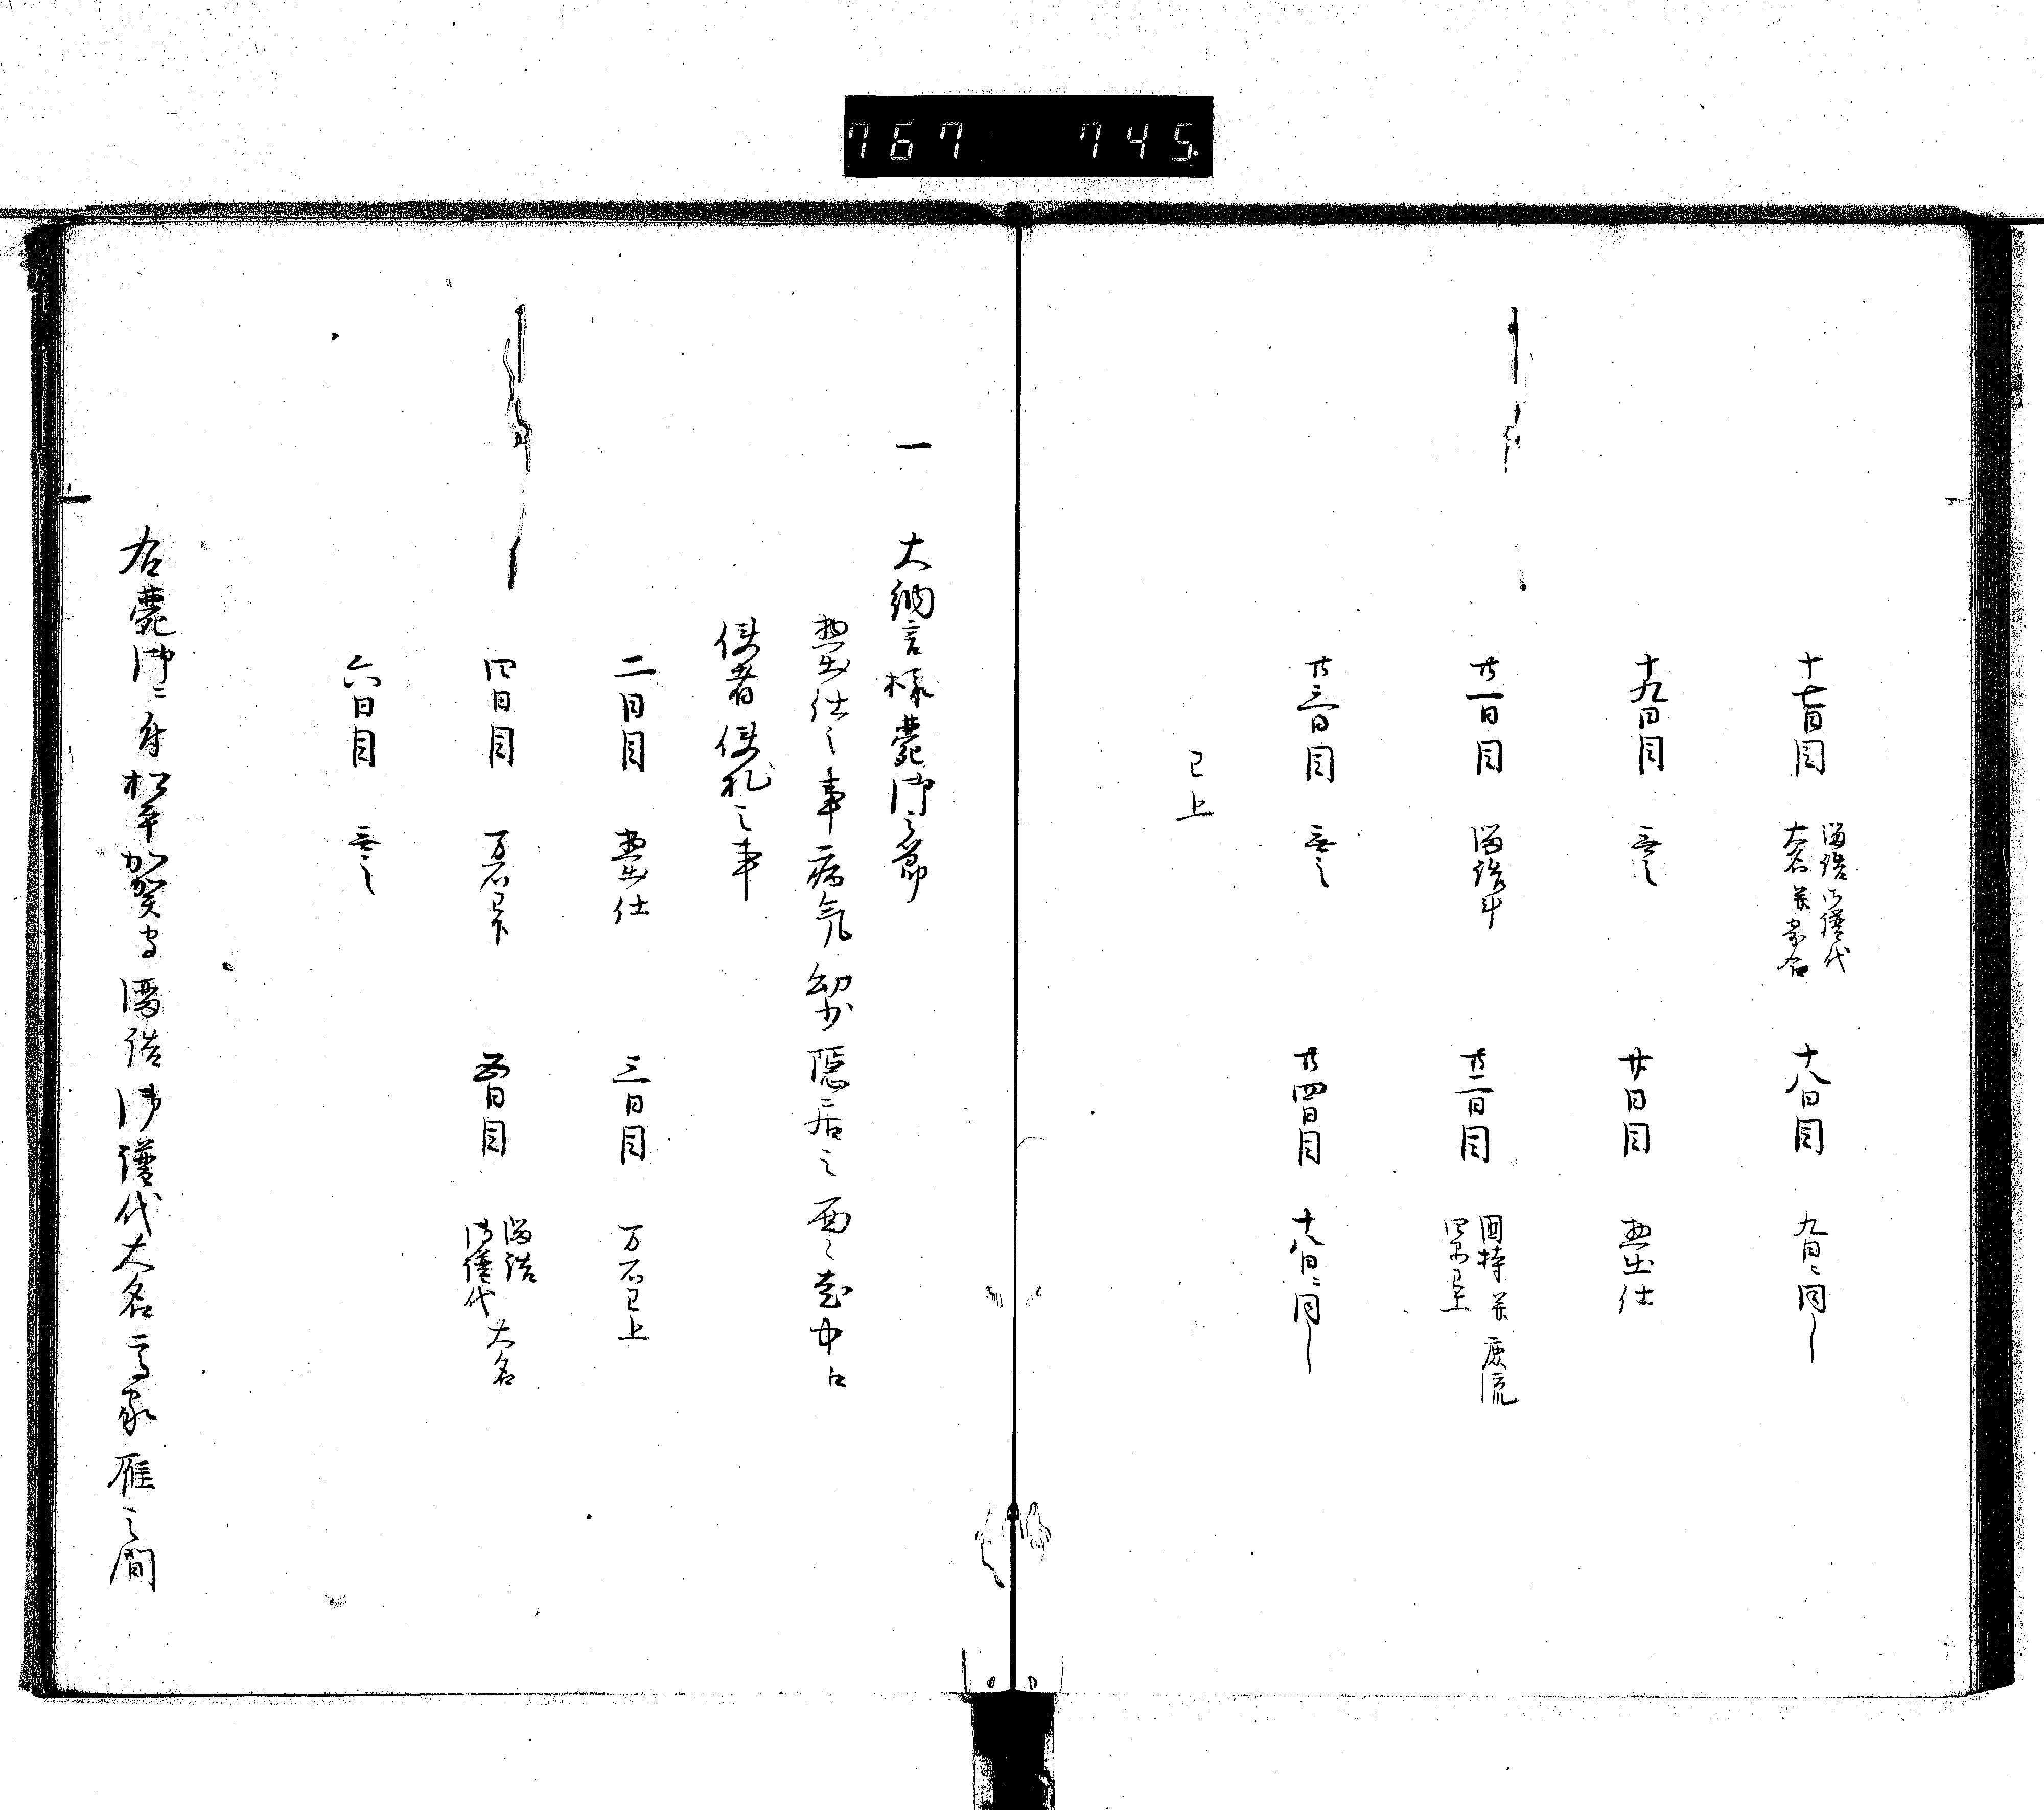 767 745
十七日目 溜詰御譜代
大名並寄合
十八日目 九日ニ同し
十九日目 無之
廿日目 惣出仕
廿一日目 溜詰斗
廿二日目 国持並庶流
四品已上
廿三日目 無之
廿四日目 十八日ニ同し
已上
一 大納言様薨御之節
惣出仕之事病気幼少隠居之面々老中江
使者使札之事
二日目 惣出仕
三日目 万石已上
四日目 万石已下
五日目 溜詰
御譜代大名
六日目 無之
一 右薨御ニ付松平加賀守溜詰御譜代大名高家雁之間